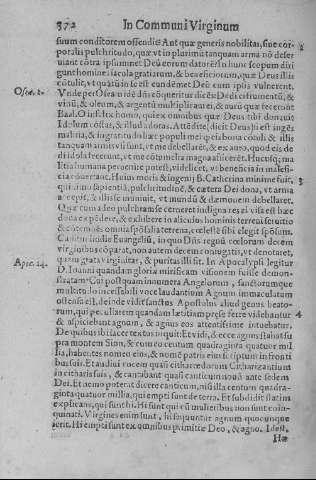 372 In Communi Virginum
suum conditorem offendit: Aut quæ generis nobilitas, siue cor-
poralis pulchritudo, quæ vt in plurimũ tanquam arma nõ deser
uiant cõtra ipsummet Deũ eorum datorẽ? In hunc scopum diri
gunt homines iacula gratiarum, & beneficiorum, quæ Deus illis
cõtulit, vt quãtũ in se est eundẽmet Deũ eum ipsis vulnerent.
Oseæ. 2. Vnde per Oseam idẽ dñs cõqueritur dicẽs: Dedi eis frumentũ, &
vinũ, & oleum, & argentũ multiplicaui ei, & aurũ quæ fecerũt
Baal. O infelix homo, qui ex omnibus quæ Deus tibi donauit
Idolum cõflas, & illud adoras. Attẽdite, dicit Deus hæc inge-
malitia, & ingratitudo hæc populi mei: ipse bona cõtuli & illis
tanquam armis vsi sunt, vt me debellarẽt, & ex auro, quod eis de
di idola fecerunt, vt me cõtumelia magna afficerẽt. Hucusq; ma
litia humana peruenire potest, videlicet, vt beneficia in malefi-
cia cõuertat. Huius moris & ingenij B. Catherina minime fuit,
quæ sapientiã, pulchritudinẽ, & cætera Dei dona, vt arma
accepit, & illis se muniuit, vt mundũ & dæmonem debellaret.
Quæ cum adeo pulchram se cerneret indigna res ei visa est hæc
dona expẽdere, & exhibere in alicuius hominis terreni seruitio
& cõtẽptis omnia spõsalia terrena, cœlestẽ sibi elegit spõsum.
Canitur hodie Euangeliũ, in quo Dñs regnũ cœlorum decem
virginibus cõparat, non autem decem coniugatis, vt denotaret,
quãtũ grata virginitas, & puritas illi sit. In Apocalypsi legitur
Apoc. 14. D. Ioanni quandam gloriã mirificam visionem fuisse demon-
stratam: Cui postquam innumera Angelorum, sanctorumque
multitudo incessabili voce laudantium Agnum immaculatum
ostensa est, deinde vidit sanctus Apostolus aliud genus beato-
rum, qui peculiarem quandam lætitiam præse ferre videbantur 4
& aspiciebant agnum, & agnus eos attentissime intuebatur.
De quibus ibi sacer textus inquit: Et vidi, & ecce agnus stabat su
pra montem Sion, & cum eo centum quadraginta quatuor mil
lia, habentes nomen eius, & nomẽ patris eius scriptum in fronti
bus suis. Et audiui vocem quasi citharœdorum Citharizantium
in citharis suis, & cantabant quasi canticum nouũ ante sedem
Dei. Et nemo poterat dicere canticum, nisi illa centum quadra-
ginta quatuor millia, qui empti sunt de terra. Et subdidit statim
explicans, qui sunt hi. Hi sunt qui cũ mulieribus non sunt coin-
quinati. Virgines enim sunt, hi sequuntur agnum quocunque
ierit. Hi empti sunt ex omnibus primitiæ Deo, & agno. Idest.
Hæ